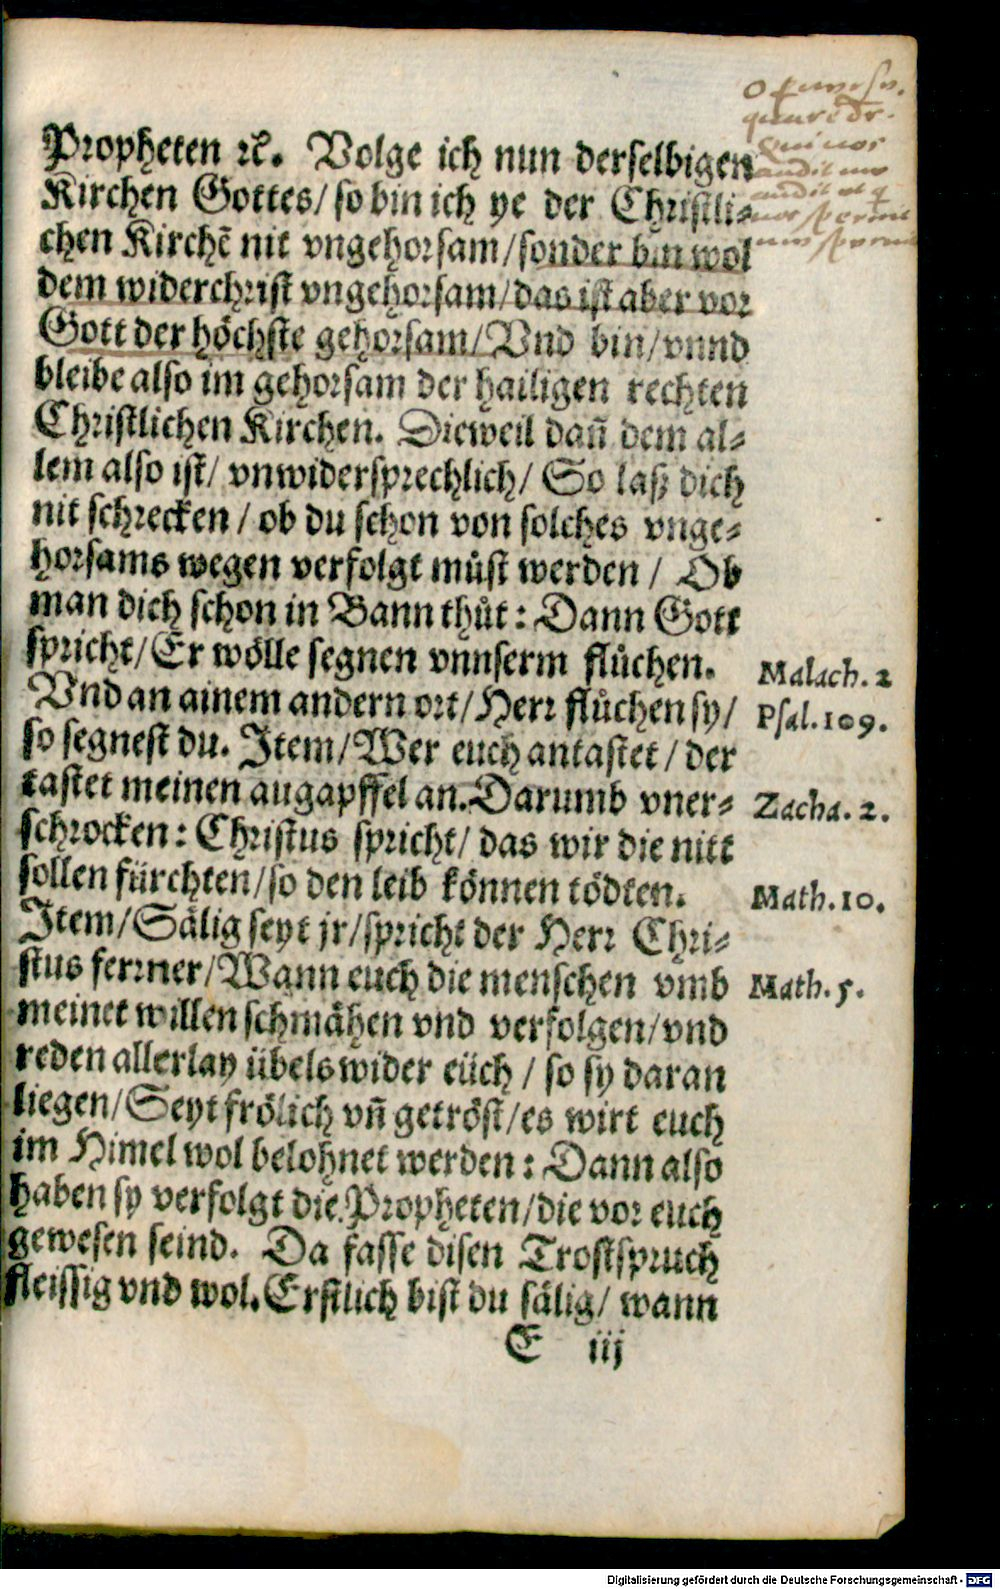 Propheten ꝛc̃. Volge ich nun derselbigen
Kirchen Gottes/ so bin ich ye der Christli⸗
chen Kirchẽ nit vngehorsam/ sonder bin wol
dem widerchrist vngehorsam/ das ist aber vor
Gott der höchste gehorsam/ Vnd bin/ vnnd
bleibe also im gehorsam der hailigen rechten
Christlichen Kirchen. Dieweil dañ dem al⸗
lem also ist/ vnwidersprechlich/ So laß dich
nit schrecken / ob du schon von solches vnge⸗
horsams wegen verfolgt můst werden / Ob
man dich schon in Bann thůt : Dann Gott
spricht/ Er wölle segnen vnnserm flůchen.
Malach. 2
Vnd an ainem andern ort/ Herr flůchen sy/
Psal. 109.
so segnest du. Item/ Wer euch antastet / der
tastet meinen augapffel an. Darumb vner⸗
Zacha. 2.
schrocken : Christus spricht/ das wir die nitt
sollen fürchten/ so den leib können tödten.
Math. 10.
Item/ Sälig seyt jr/ spricht der Herr Chri⸗
stus ferrner/ Wann euch die menschen vmb
Math. 5.
meinet willen schmähen vnd verfolgen/ vnd
reden allerlay übels wider eüch / so sy daran
liegen/ Seyt frölich vñ getröst/ es wirt euch
im Himel wol belohnet werden : Dann also
haben sy verfolgt die Propheten/ die vor euch
gewesen seind. Da fasse disen Trostspruch
fleissig vnd wol. Erstlich bist du sälig/ wann
E iij
Digitalisierung gefördert durch die Deutsche Forschungsgemeinschaft - DFG